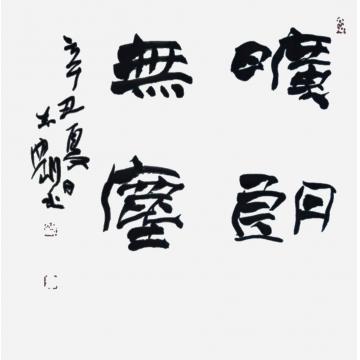 曠朗
無塵
辛丑夏日